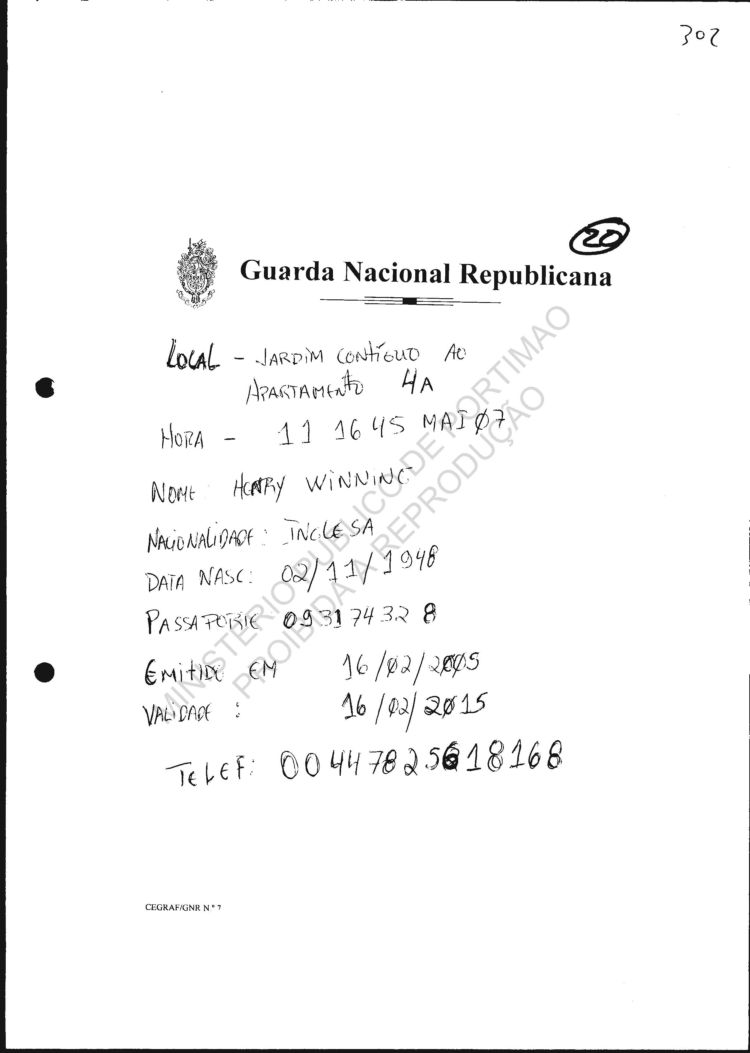 302
20
Guarda Nacional Republicana
LOCAL - JARDIM CONTÍGUO AO
APARTAMENTO 4A
HORA - 11 1645 MAI Ø7
NOME HENRY WINNING
NACIONALIDADE: INGLESA
DATA NASC: 02/11/1948
PASSAPORTE 093174328
EMITIDO EM 16/Ø2/2005
VALIDADE : 16/Ø2/2Ø15
TELEF: 00447825618168
MINISTÉRIO PUBLICO DE PORTIMAO
PROIBIDA A REPRODUÇÃO
CEGRAF/GNR N.º 7